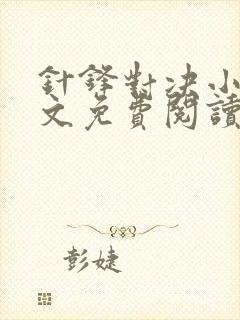 針鋒對決小
文免費閱讀
彭婕